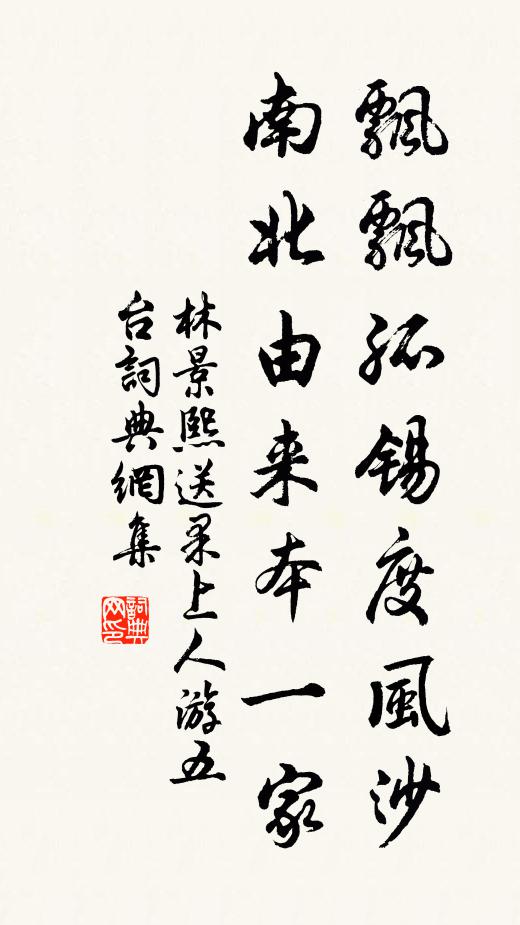 飄飄孤錫度風沙
南北由来本一家
林景熙送果上人游五
台詞典網集
詞典
网印